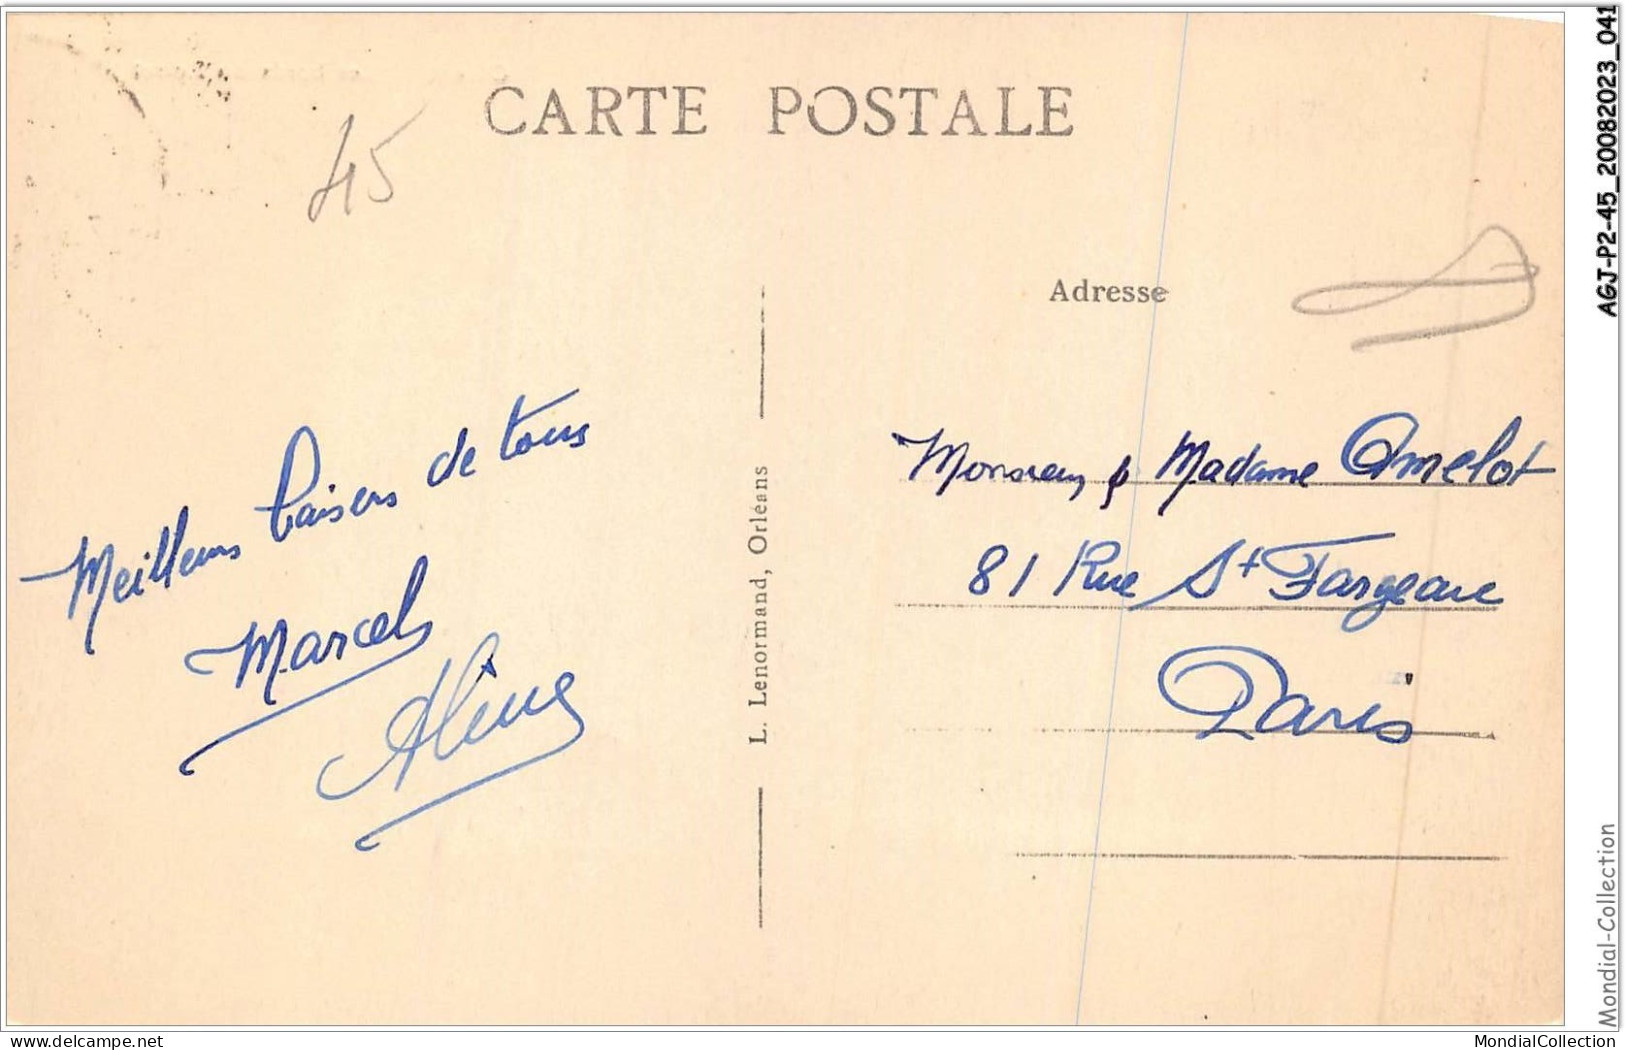 CARTE POSTALE
45
Adresse
Meilleurs baisers de tous
Marcel
Aline
L. Lenormand, Orléans
Monsieur & Madame Amelot
81 Rue St Fargeau
Paris
AGJ-P2-45_20082023_041
Mondial-Collection
delcampe.net
MondialCollection